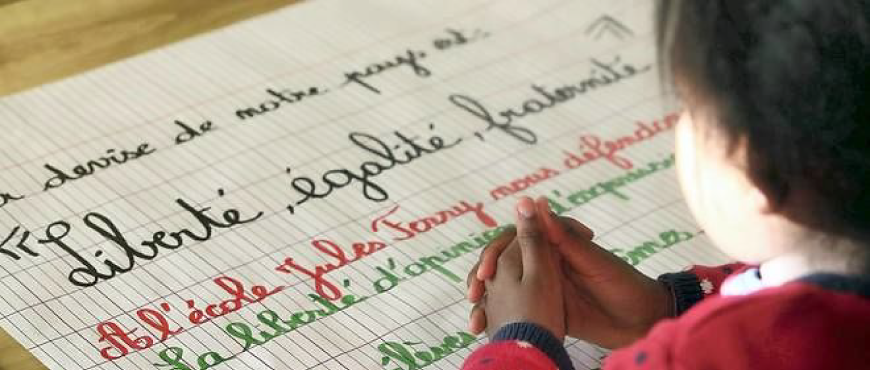 devise de notre pays est:
"Liberté, égalité, fraternité
A l'école Jules Ferry nous défendons
La liberté d'opinion d'expression
élèves